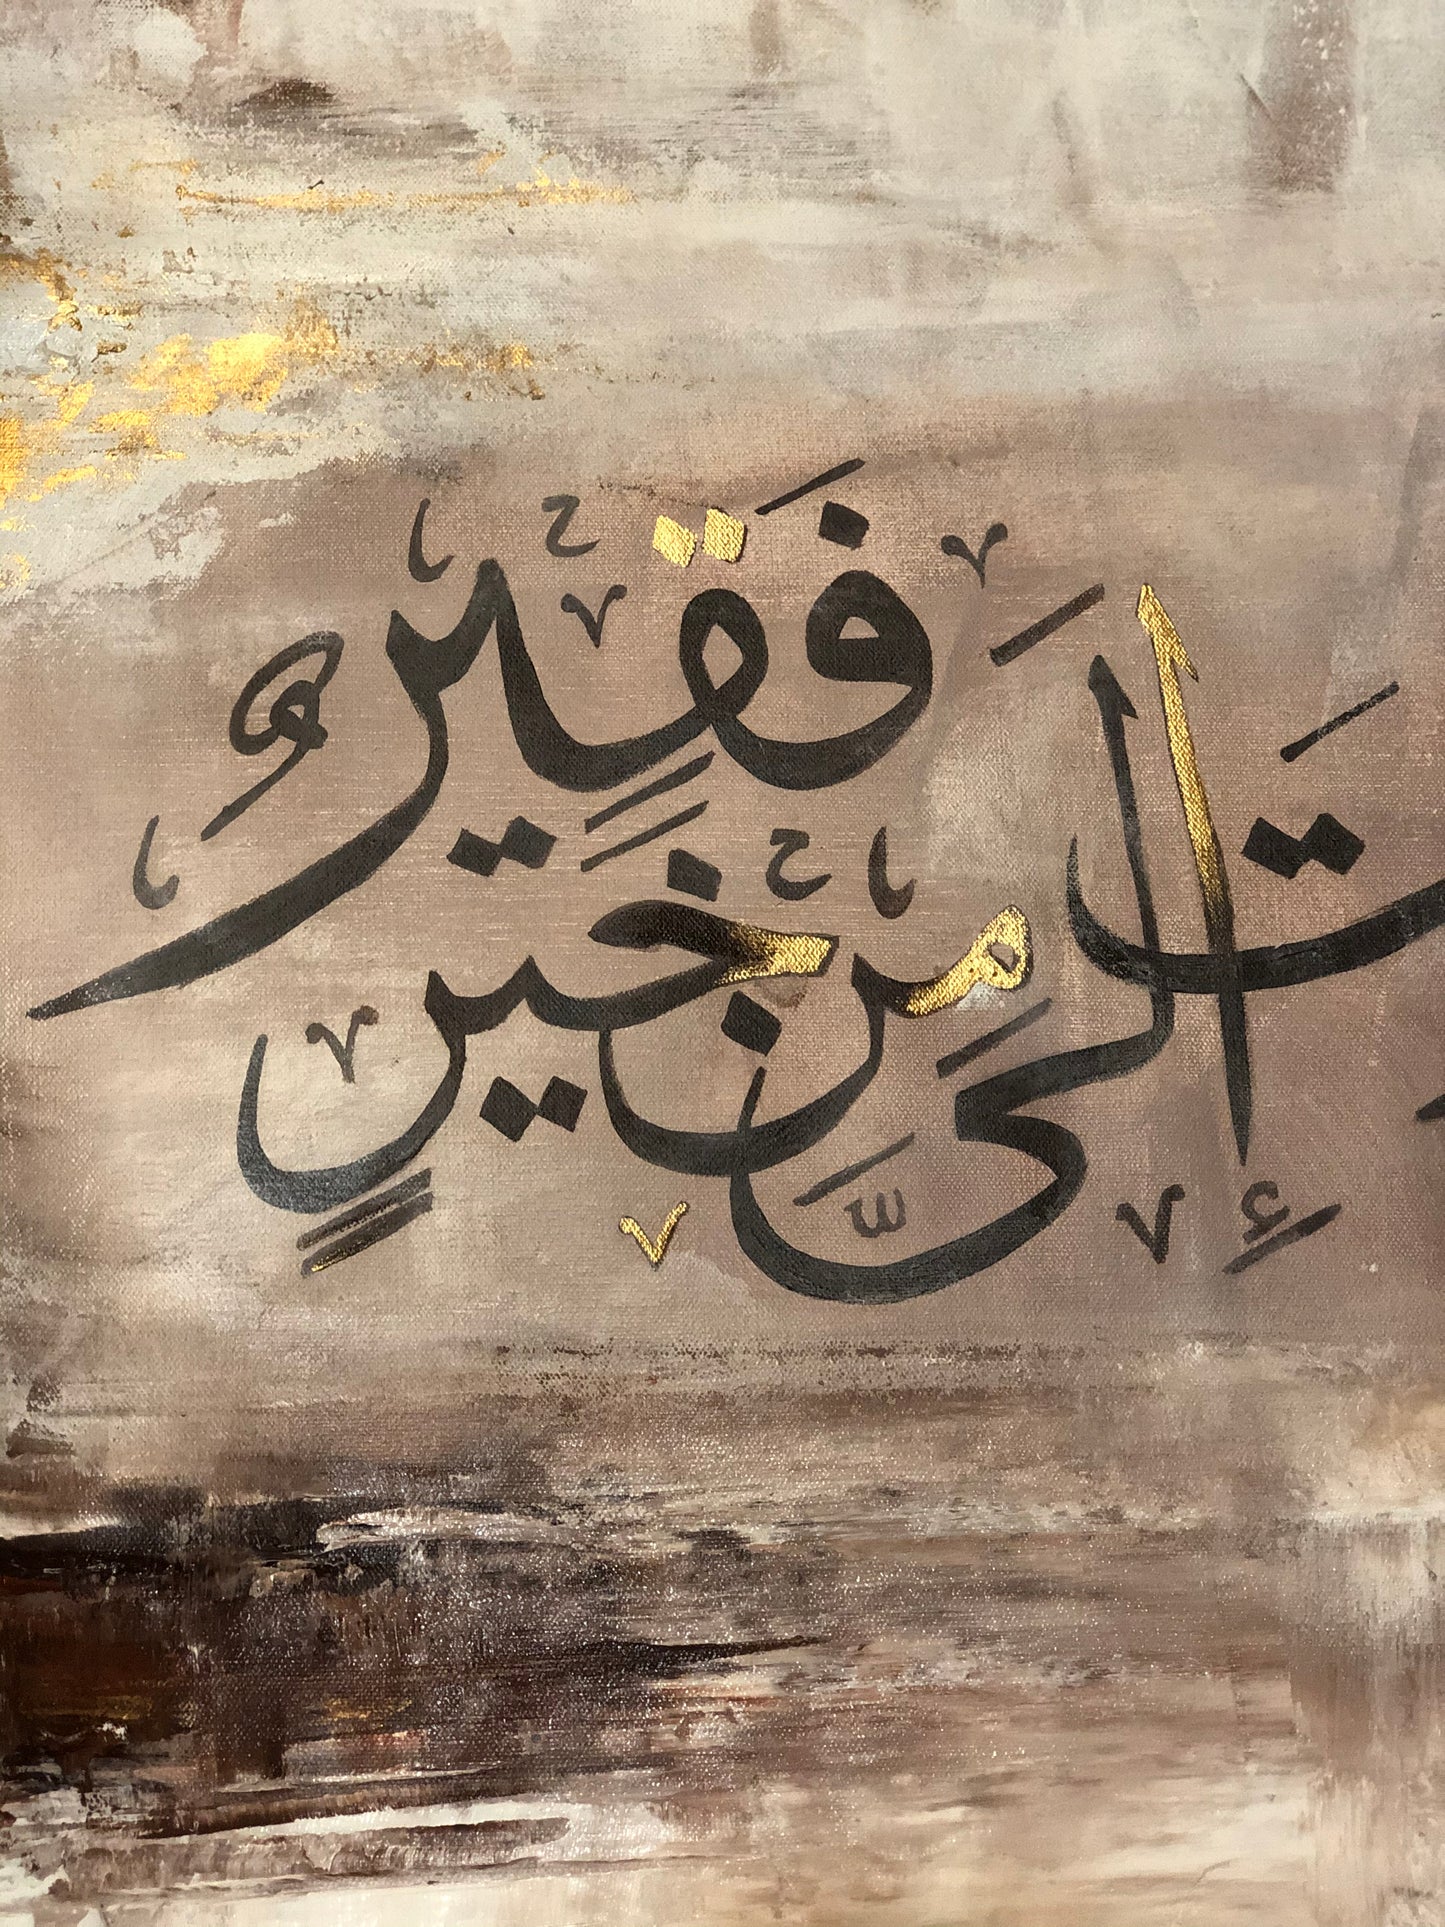 تَ إِلَىَّ مِنْ خَيْرٍ فَقِيرٌ